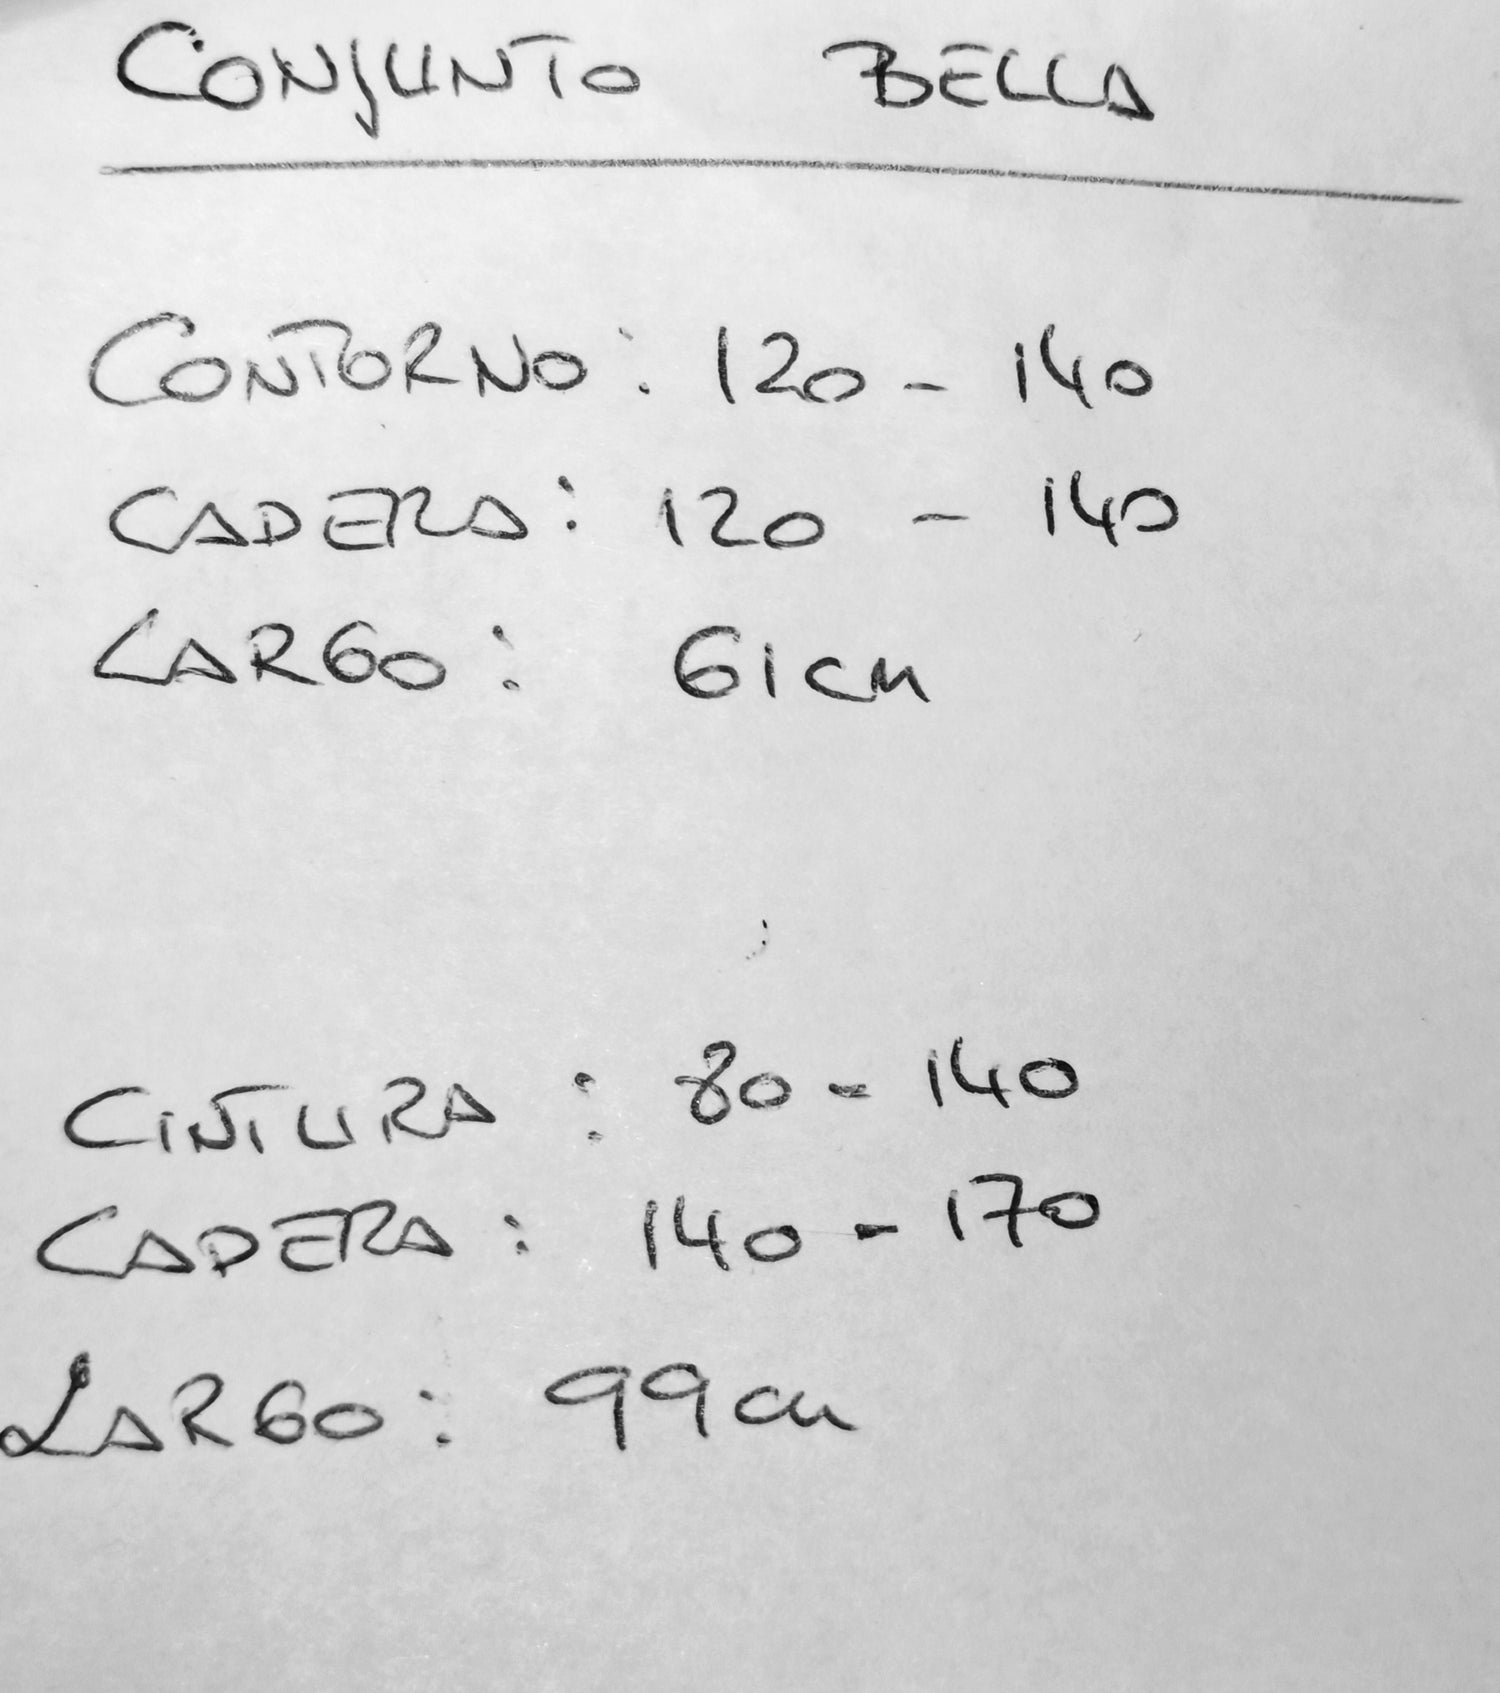 CONJUNTO BELLA
CONTORNO: 120 - 140
CADERA: 120 - 140
LARGO: 61cm
CINTURA: 80 - 140
CADERA: 140 - 170
LARGO: 99cm